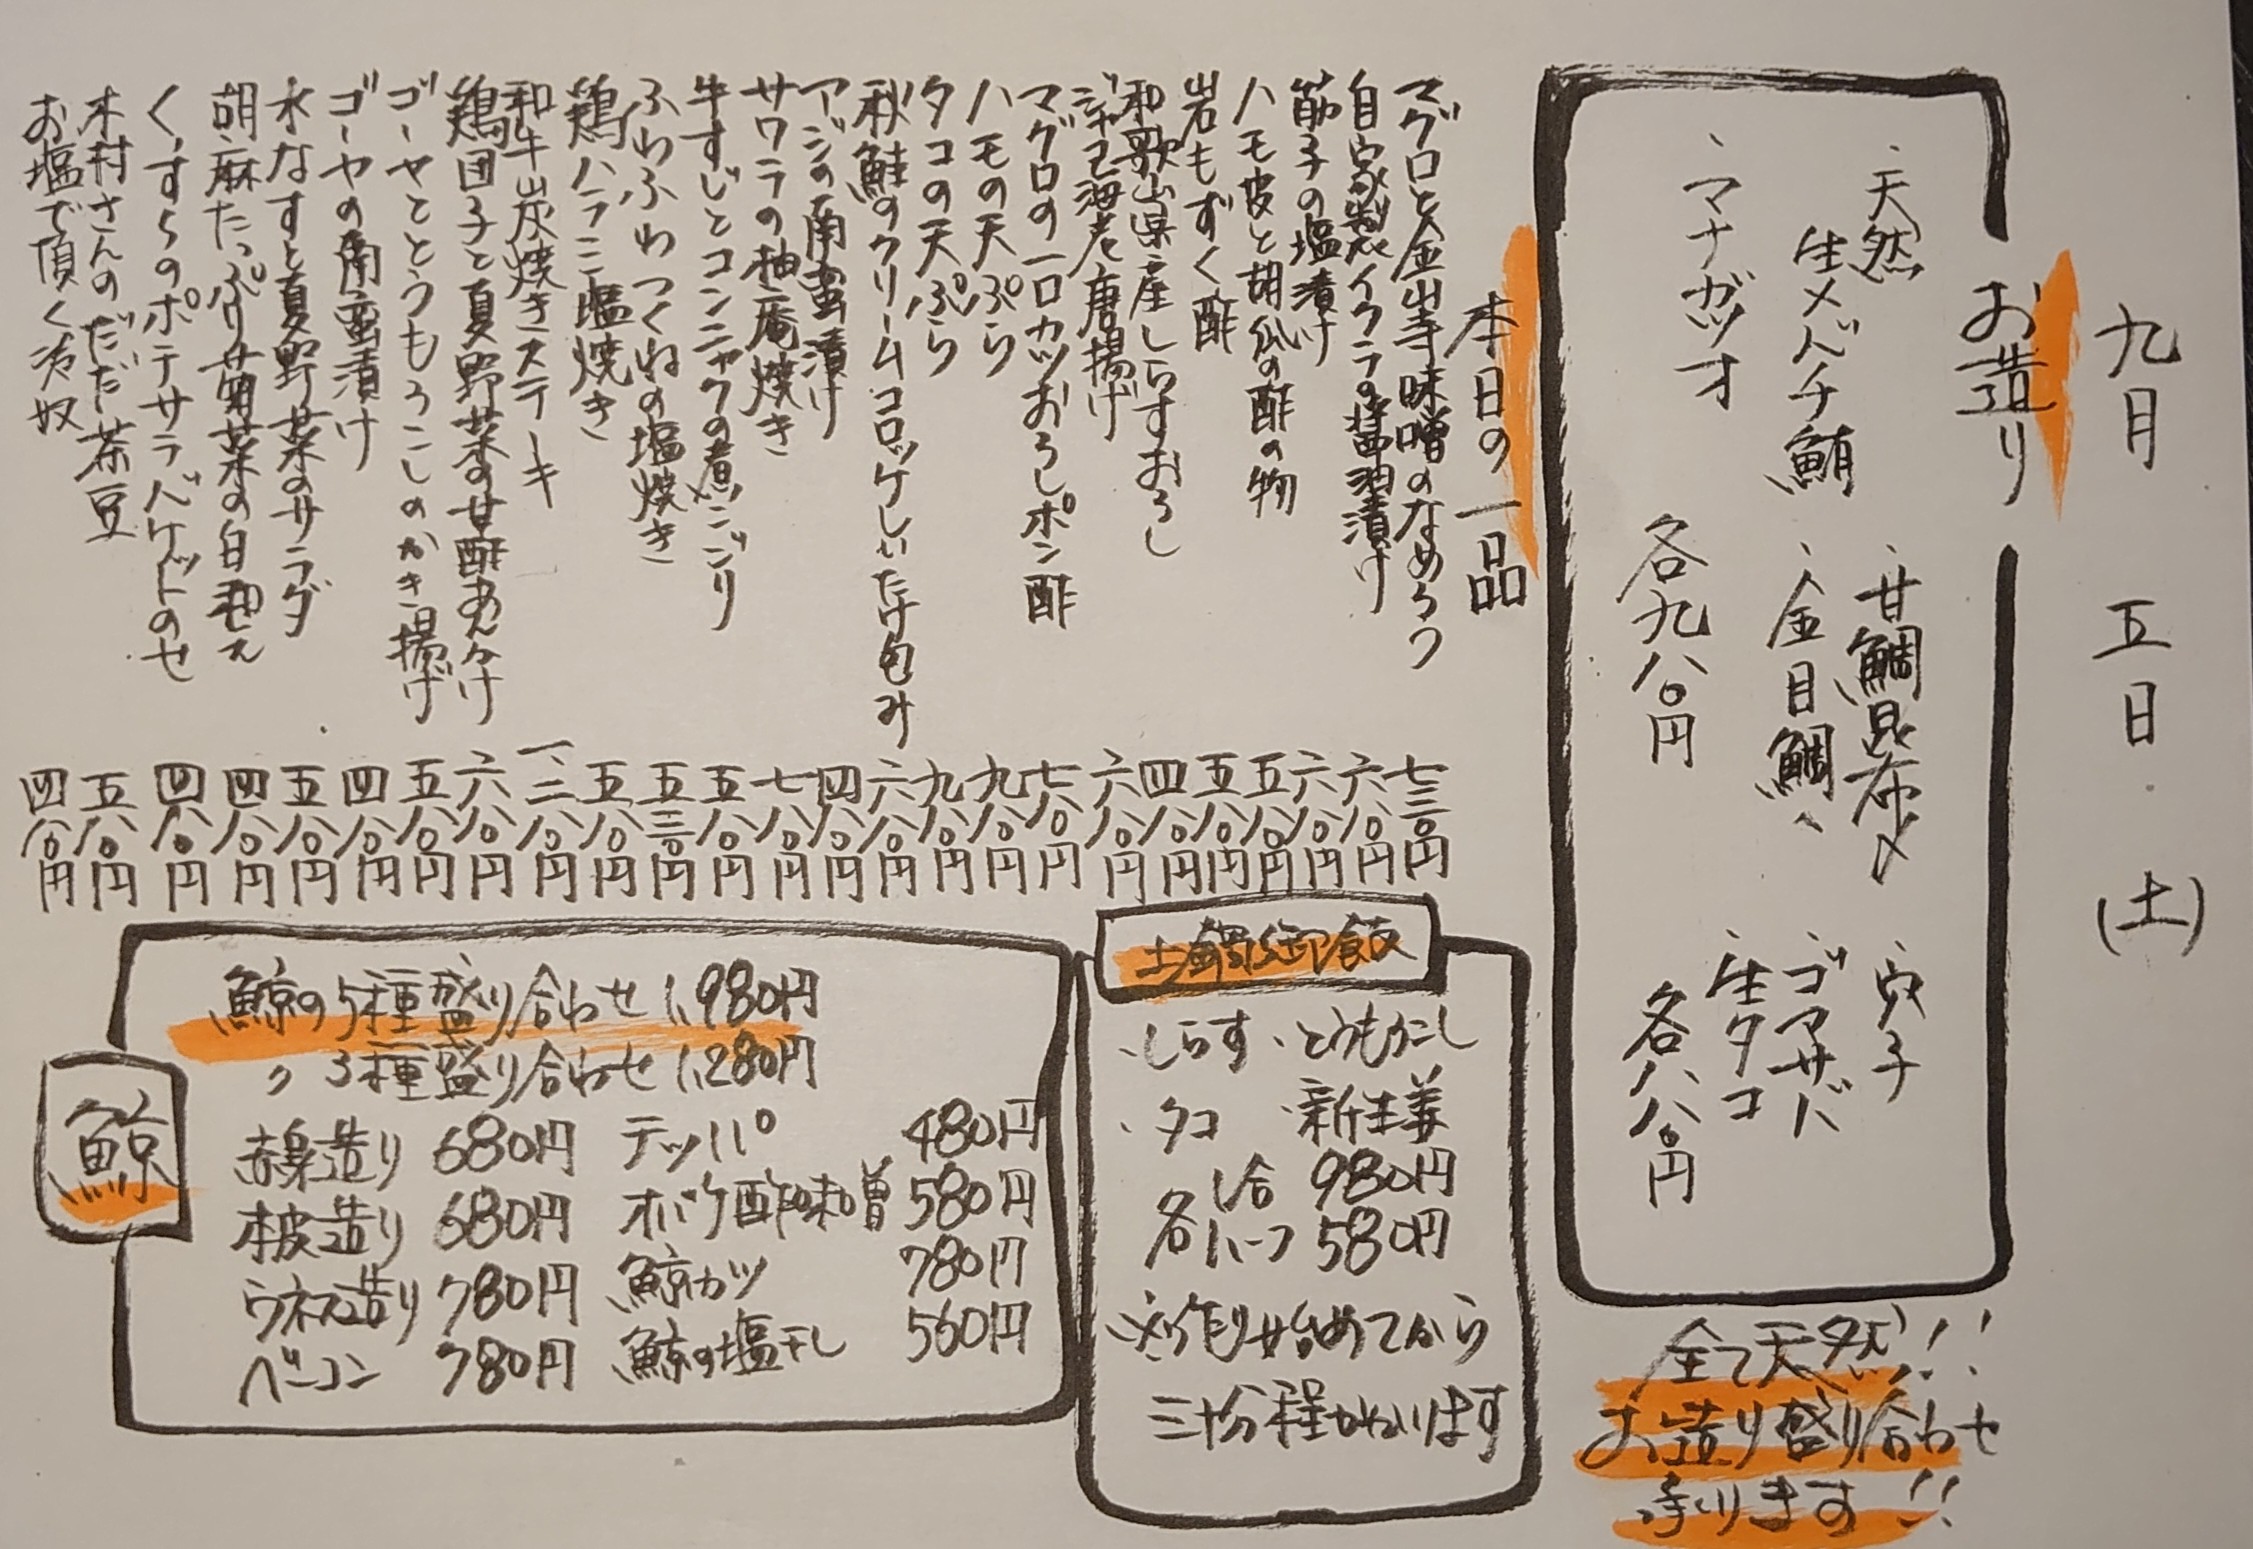 九月 五日 (土)
お造り
・天然
生メバチ鮪
・マナガツオ
・甘鯛昆布〆
・金目鯛
各九八〇円
・穴子
・ゴマサバ
・生タコ
各八八〇円
全て天然!!
お造り盛り合わせ
承ります!!
本日の一品
マグロと金山寺味噌のなめろう 七三〇円
自家製イクラの醤油漬け 六八〇円
筋子の塩漬け 六八〇円
ハモ皮と胡瓜の酢の物 五八〇円
岩もずく酢 五八〇円
和歌山県産しらすおろし 四八〇円
ジャコ海老唐揚げ 六八〇円
マグロの一口カツおろしポン酢 七八〇円
ハモの天ぷら 九八〇円
タコの天ぷら 九八〇円
秋鮭のクリームコロッケしいたけ包み 六八〇円
アジの南蛮漬け 四八〇円
サワラの柚庵焼き 七八〇円
牛すじとコンニャクの煮こごり 五八〇円
ふわふわつくねの塩焼き 五三〇円
鶏ハラミ塩焼き 五八〇円
和牛炭焼きステーキ 一、二八〇円
鶏団子と夏野菜の甘酢あんかけ 六八〇円
ゴーヤととうもろこしのかき揚げ 五八〇円
ゴーヤの南蛮漬け 四八〇円
水なすと夏野菜のサラダ 五八〇円
胡麻たっぷり菊菜の白和え 四八〇円
くずしのポテサラバケットのせ 四八〇円
木村さんのだだ茶豆 五八〇円
お塩で頂く冷奴 四八〇円
土鍋御飯
・しらす ・とうもろこし
・タコ ・新生姜
各一合 980円
各ハーフ 580円
※作り始めてから
三十分程かかります
鯨
鯨の5種盛り合わせ 1,980円
〃 3種盛り合わせ 1,280円
赤身造り 680円
本皮造り 680円
ウネス造り 780円
ベーコン 780円
テッパ 480円
オバケ酢味噌 580円
鯨カツ 780円
鯨の塩干し 560円